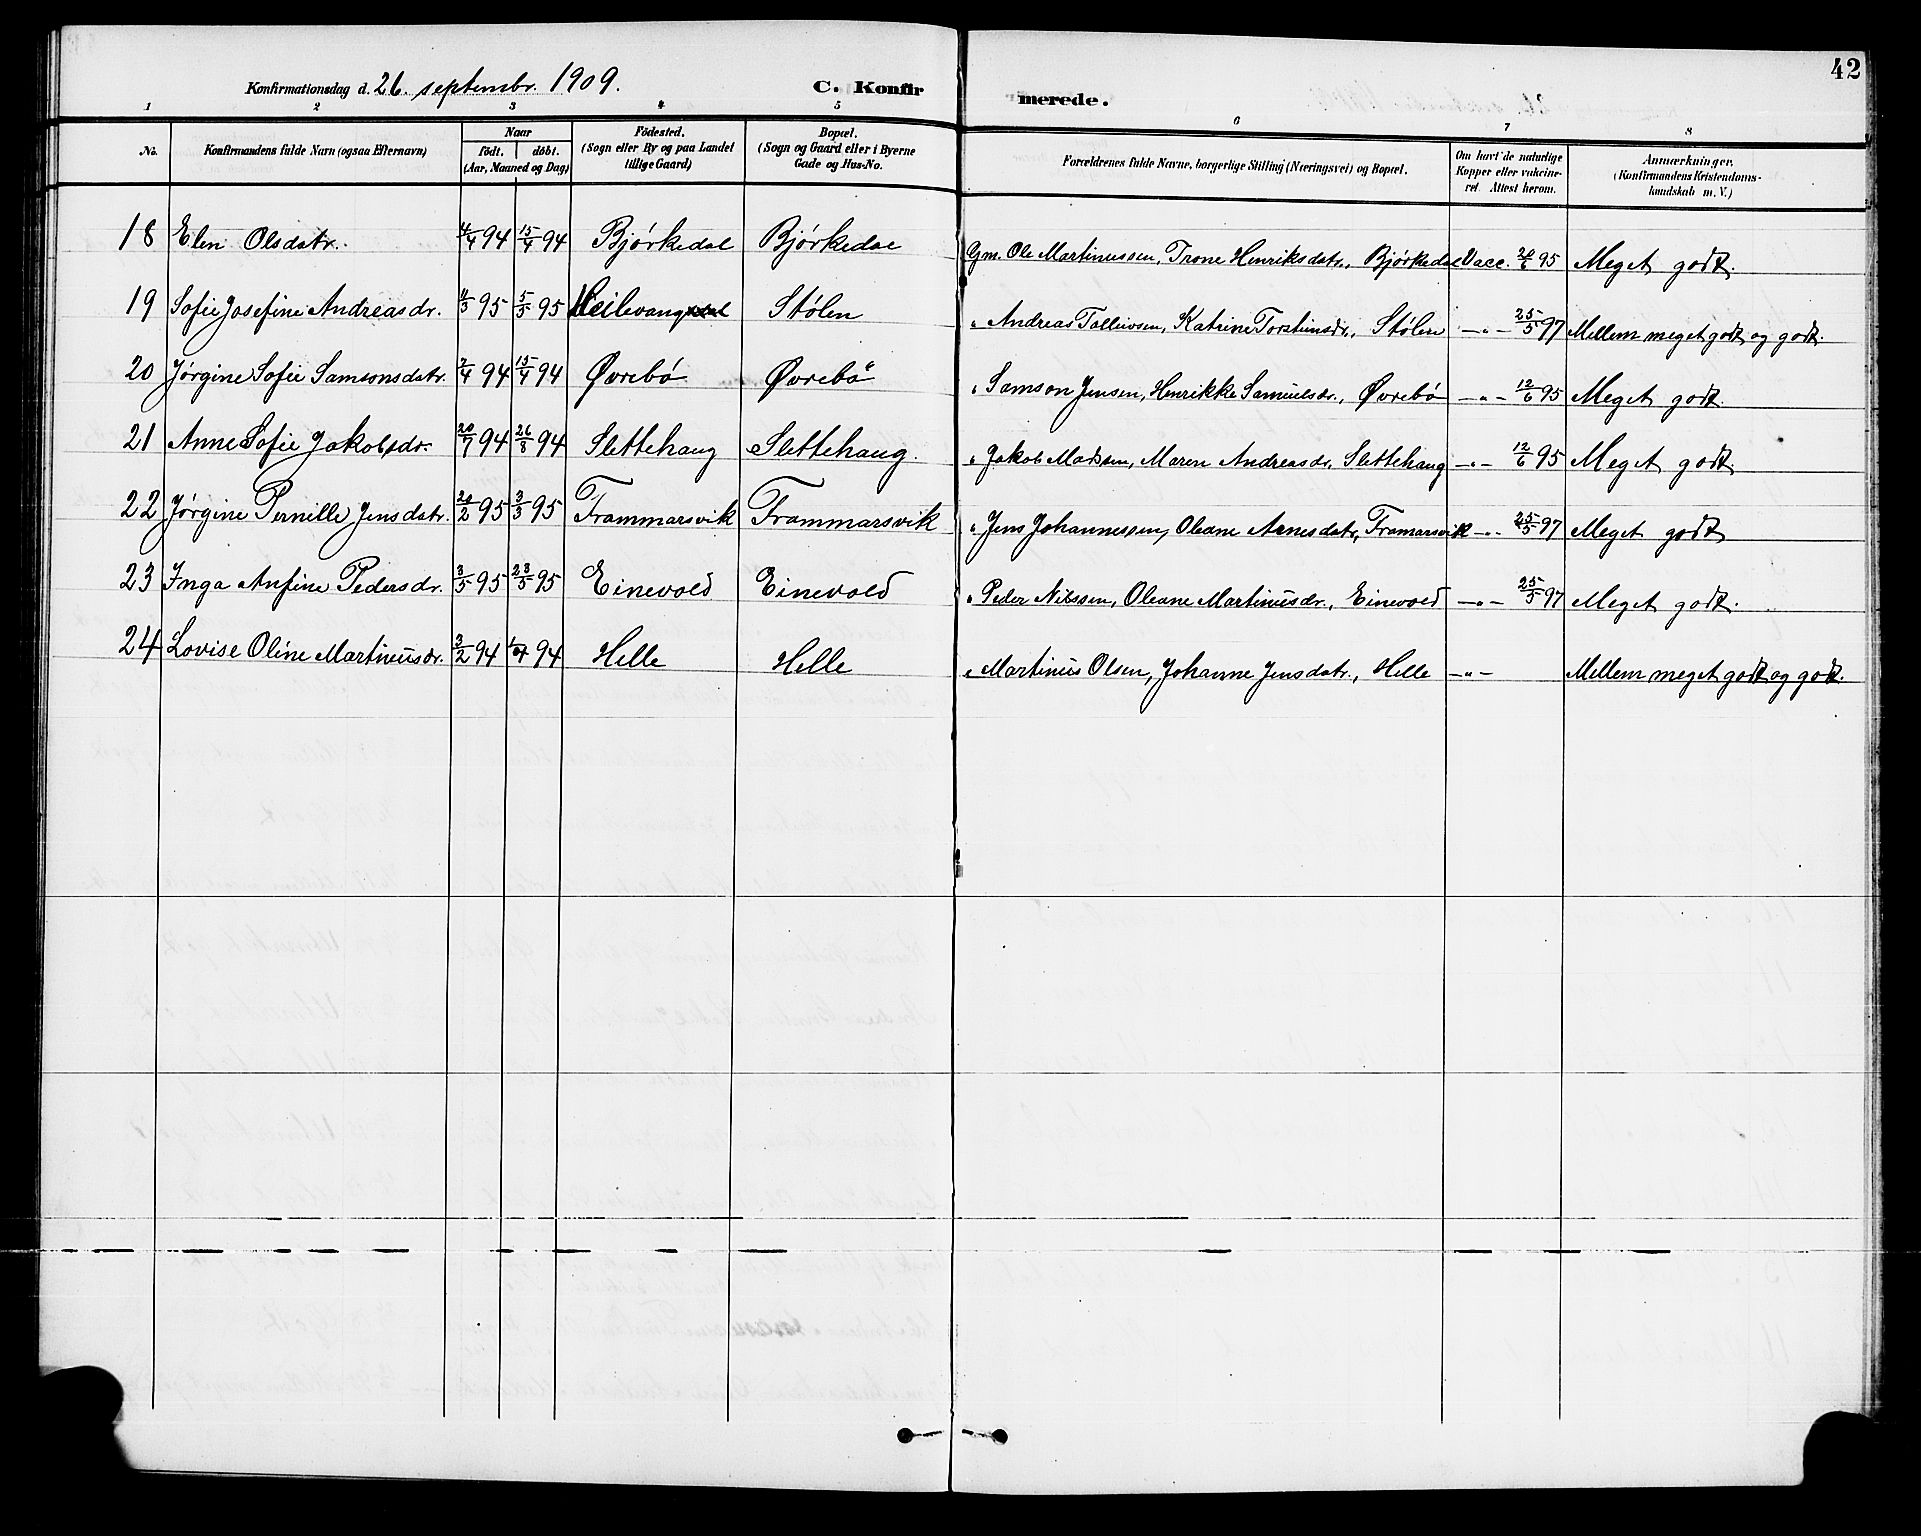 42
Konfirmationsdag d. 26. septembr. 1909. C. Konfirmerede.
1 2 3 4 5 6 7 8
No. Konfirmandens fulde Navn (ogsaa Efternavn) Naar født. døbt. (Aar, Maaned og Dag) Födested. (Sogn eller By og paa Landet tillige Gaard) Bopæl. (Sogn og Gaard eller i Byerne Gade og Hus-No. Forældrenes fulde Navne, borgerlige Stilling (Næringsvei) og Bopæl. Om havt de naturlige Kopper eller vakcineret. Attest herom. Anmærkninger. (Konfirmandens Kristendomskundskab m. V.)
18 Elen Olsdatr. 4/4 94 15/4 94 Bjørkedal Bjørkedal Gm. Ole Martinussen, Trone Henriksdatr., Bjørkedal Vacc. 20/6 95 Meget godt.
19 Sofie Josefine Andreasdr. 11/3 95 5/5 95 Heilevang Stølen " Andreas Tolleivsen, Katrine Torsteinsdr., Stølen —"— 25/5 97 Mellem meget godt og godt.
20 Jørgine Sofie Samsonsdatr. 2/4 94 15/4 94 Øvrebø Øvrebø " Samson Jensen, Henrikke Samuelsdr., Øvrebø —"— 12/6 95 Meget godt.
21 Anne Sofie Jakobsdr. 20/7 94 26/8 94 Slettehaug Slettehaug. " Jakob Madsen, Maren Andreasdr, Slettehaug —"— 12/6 95 Meget godt
22 Jørgine Pernille Jensdatr. 20/2 95 3/3 95 Frammarsvik Frammarsvik " Jens Johannessen, Oleane Arnesdatr, Framarsvik —"— 25/5 97 Meget godt
23 Inga Anfine Pedersdr. 3/5 95 23/5 95 Einevold Einevold " Peder Nilssen, Oleane Martinusdr., Einevold —"— 25/5 97 Meget godt.
24 Lovise Oline Martinusdr. 3/2 94 94 Helle Helle " Martinus Olsen, Johanne Jensdatr., Helle —"— Mellem meget godt og godt.